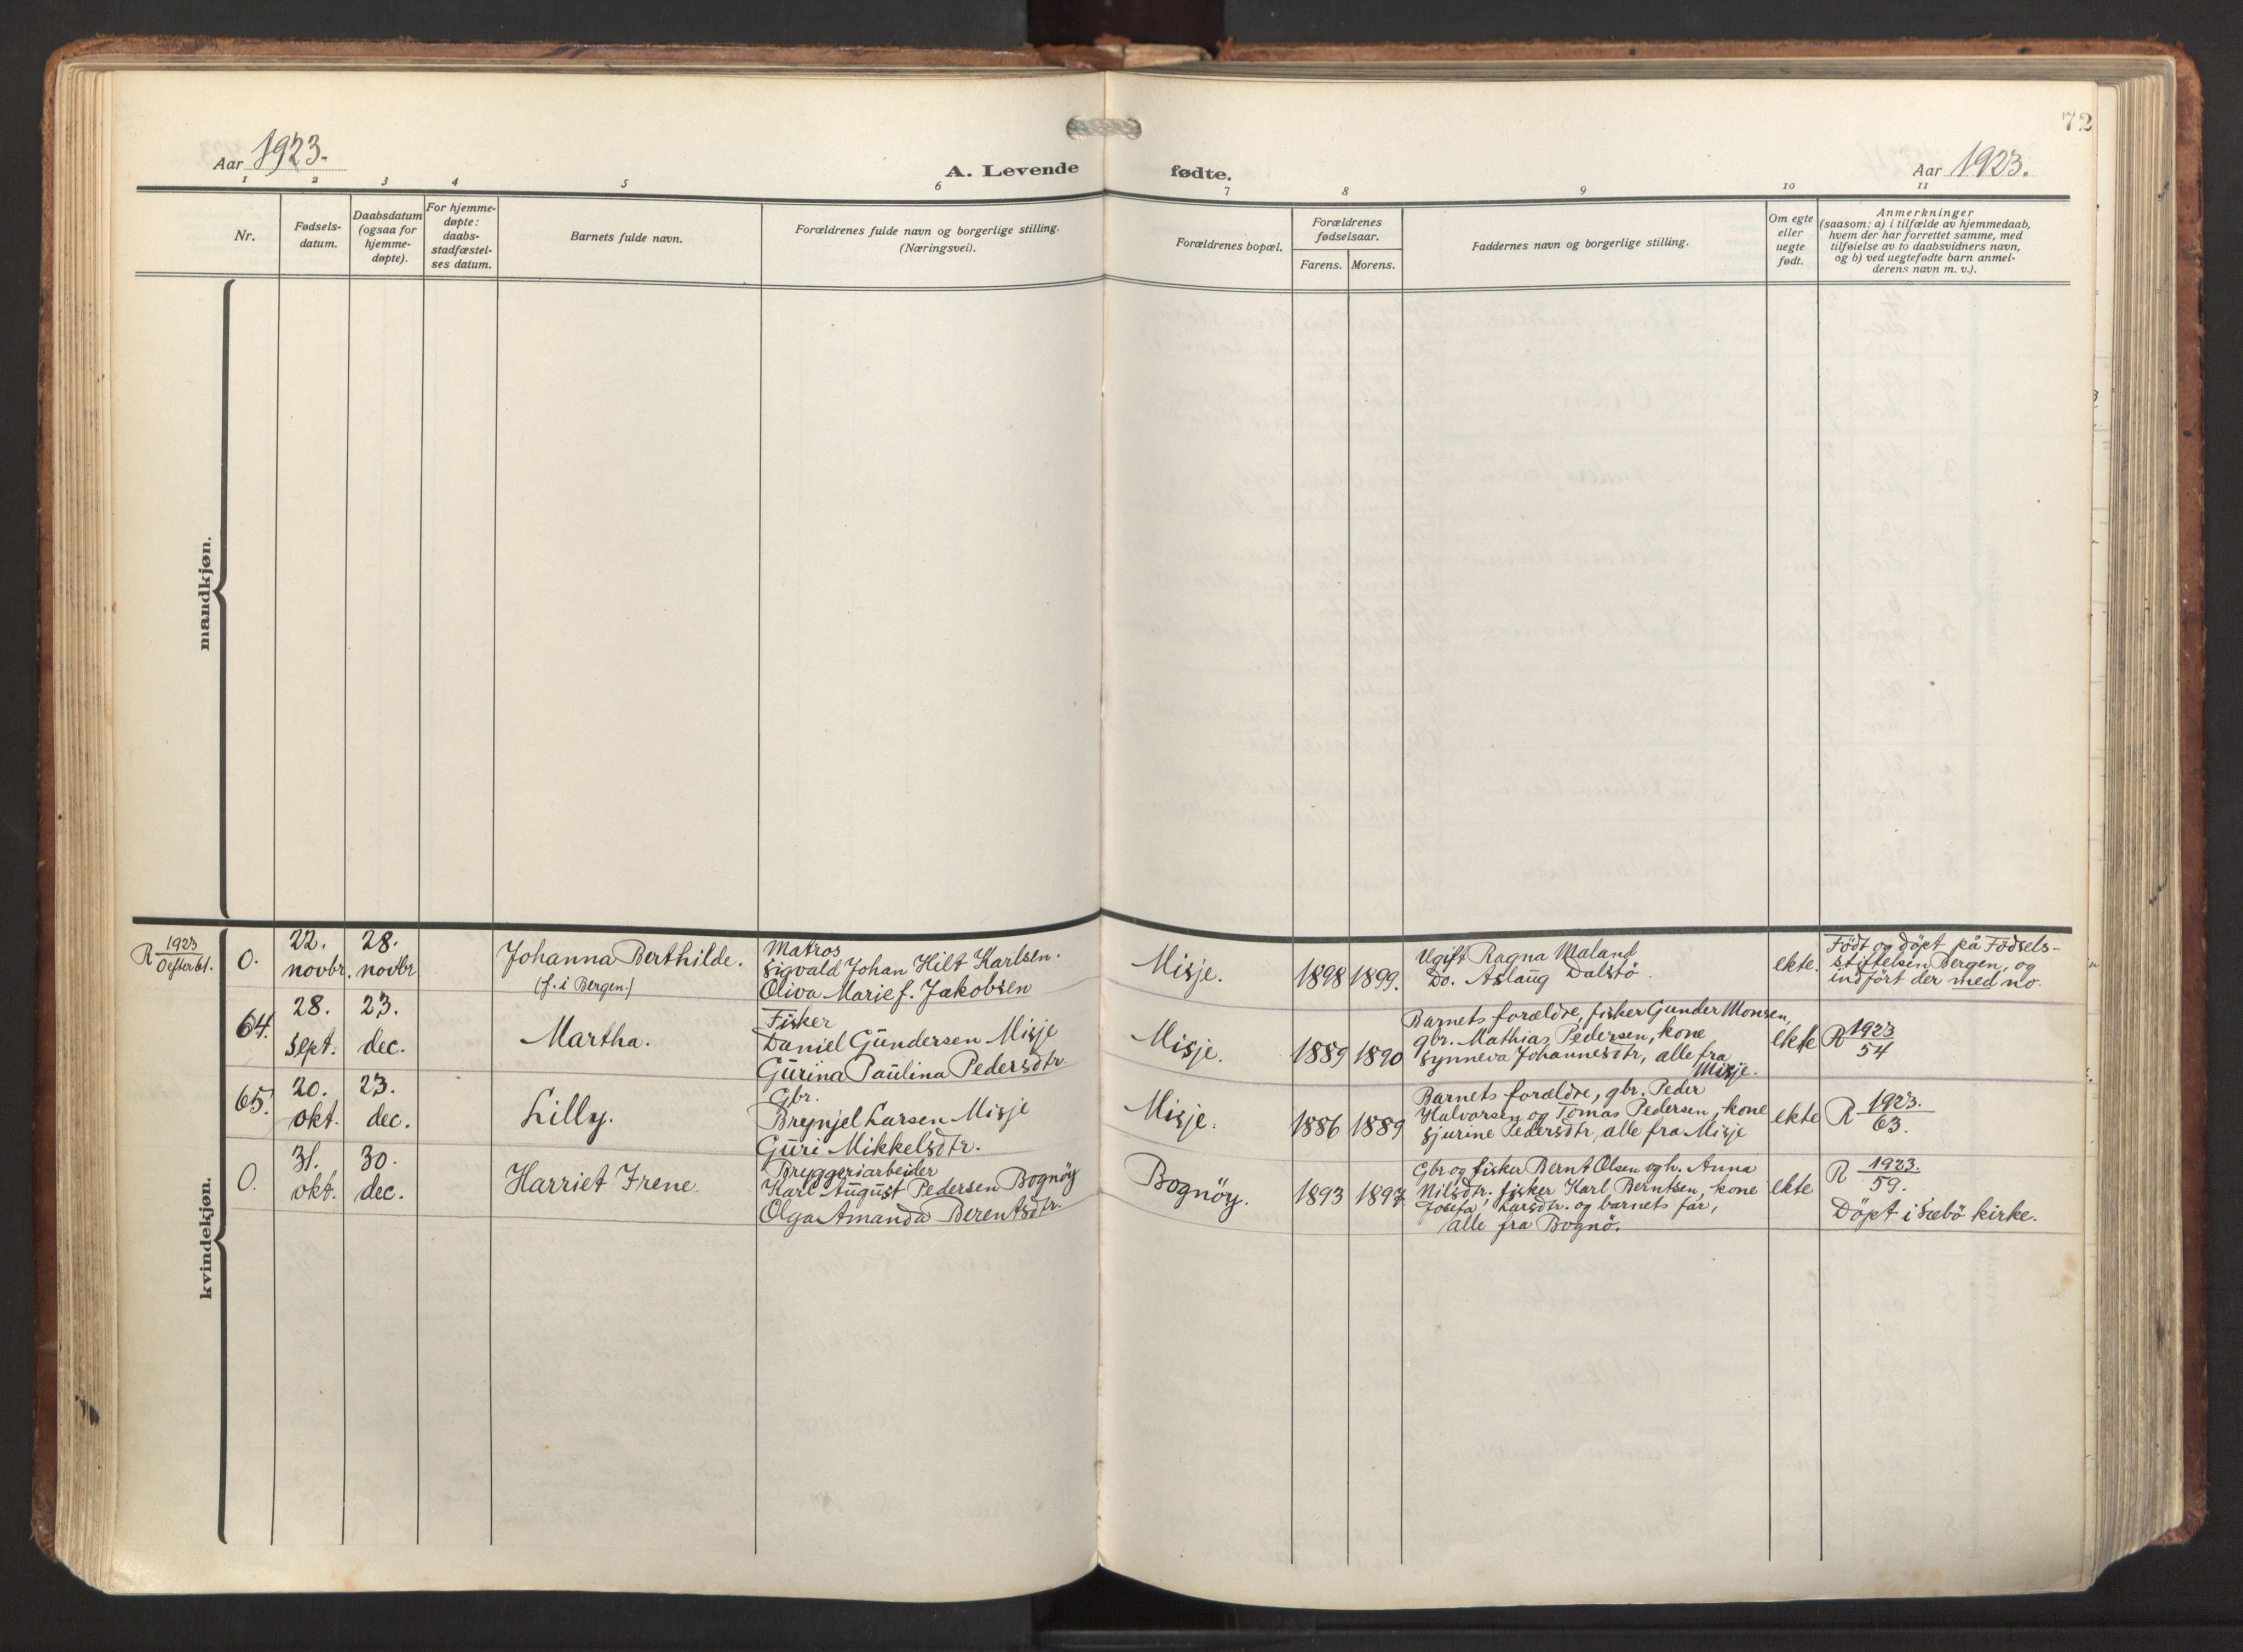 72
Aar 1923.
A. Levende fødte.
Aar 1923.
1 2 3 4 5 6 7 8 9 10 11
Nr.
Fødsels-
datum.
Daabsdatum
(ogsaa for
hjemme-
døpte).
For hjemme-
døpte:
daabs-
stadfæstel-
ses datum.
Barnets fulde navn.
Forældrenes fulde navn og borgerlige stilling.
(Næringsvei).
Forældrenes bopæl.
Forældrenes
fødselsaar.
Farens. Morens.
Faddernes navn og borgerlige stilling.
Om egte
eller
uegte
født.
Anmerkninger
(saasom: a) i tilfælde av hjemmedaab,
hvem der har forrettet samme, med
tilføielse av to daabsvidners navn,
og b) ved uegtefødte barn anmel-
derens navn m. v.).
mandkjøn.
kvindekjøn.
R 1923
O efter 61.
O.
22.
novbr.
28.
novbr
Johanna Berthilde.
(f. i Bergen.)
Matros
Sigvald Johan Hilt Karlsen.
Oliva Marie f. Jakobsen
Misje.
1898 1899.
Ugift Ragna Maland
Do. Aslaug Dalstö.
ekte.
Födt og döpt på Födsels-
stiftelsen Bergen, og
indfört der med no.
64.
28.
sept.
23.
dec.
Martha.
Fisker
Daniel Gundersen Misje
Gurina Paulina Pedersdtr.
Misje.
1889 1890
Barnets forældre, fisker Gunder Monsen,
gbr. Mathias Pedersen, kone
Synneva Johannesdtr, alle fra
Misje.
ekte
R 1923
54
65.
20.
okt.
23.
dec.
Lilly.
Gbr.
Brynjel Larsen Misje
Guri Mikkelsdtr.
Misje.
1886 1889
Barnets forældre, gbr. Peder
Halvorsen og Tomas Pedersen, kone
Sjurine Pedersdtr, alle fra Misje
ekte
R 1923.
63.
O.
31.
okt.
30.
dec.
Harriet Irene.
Bryggeriarbeider
Karl August Pedersen Bognöy
Olga Amanda Berentsdtr.
Bognöy.
1893 1897.
Gbr og fisker Bernt Olsen og h. Anna
Nilsdtr, fisker Karl Berntsen, kone
Josefa Larsdtr. og barnets far,
alle fra Bognö.
ekte
R 1923.
59.
Döpt i Sæbö kirke.